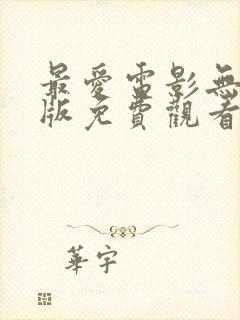 最愛電影無
版免費觀看
華宇